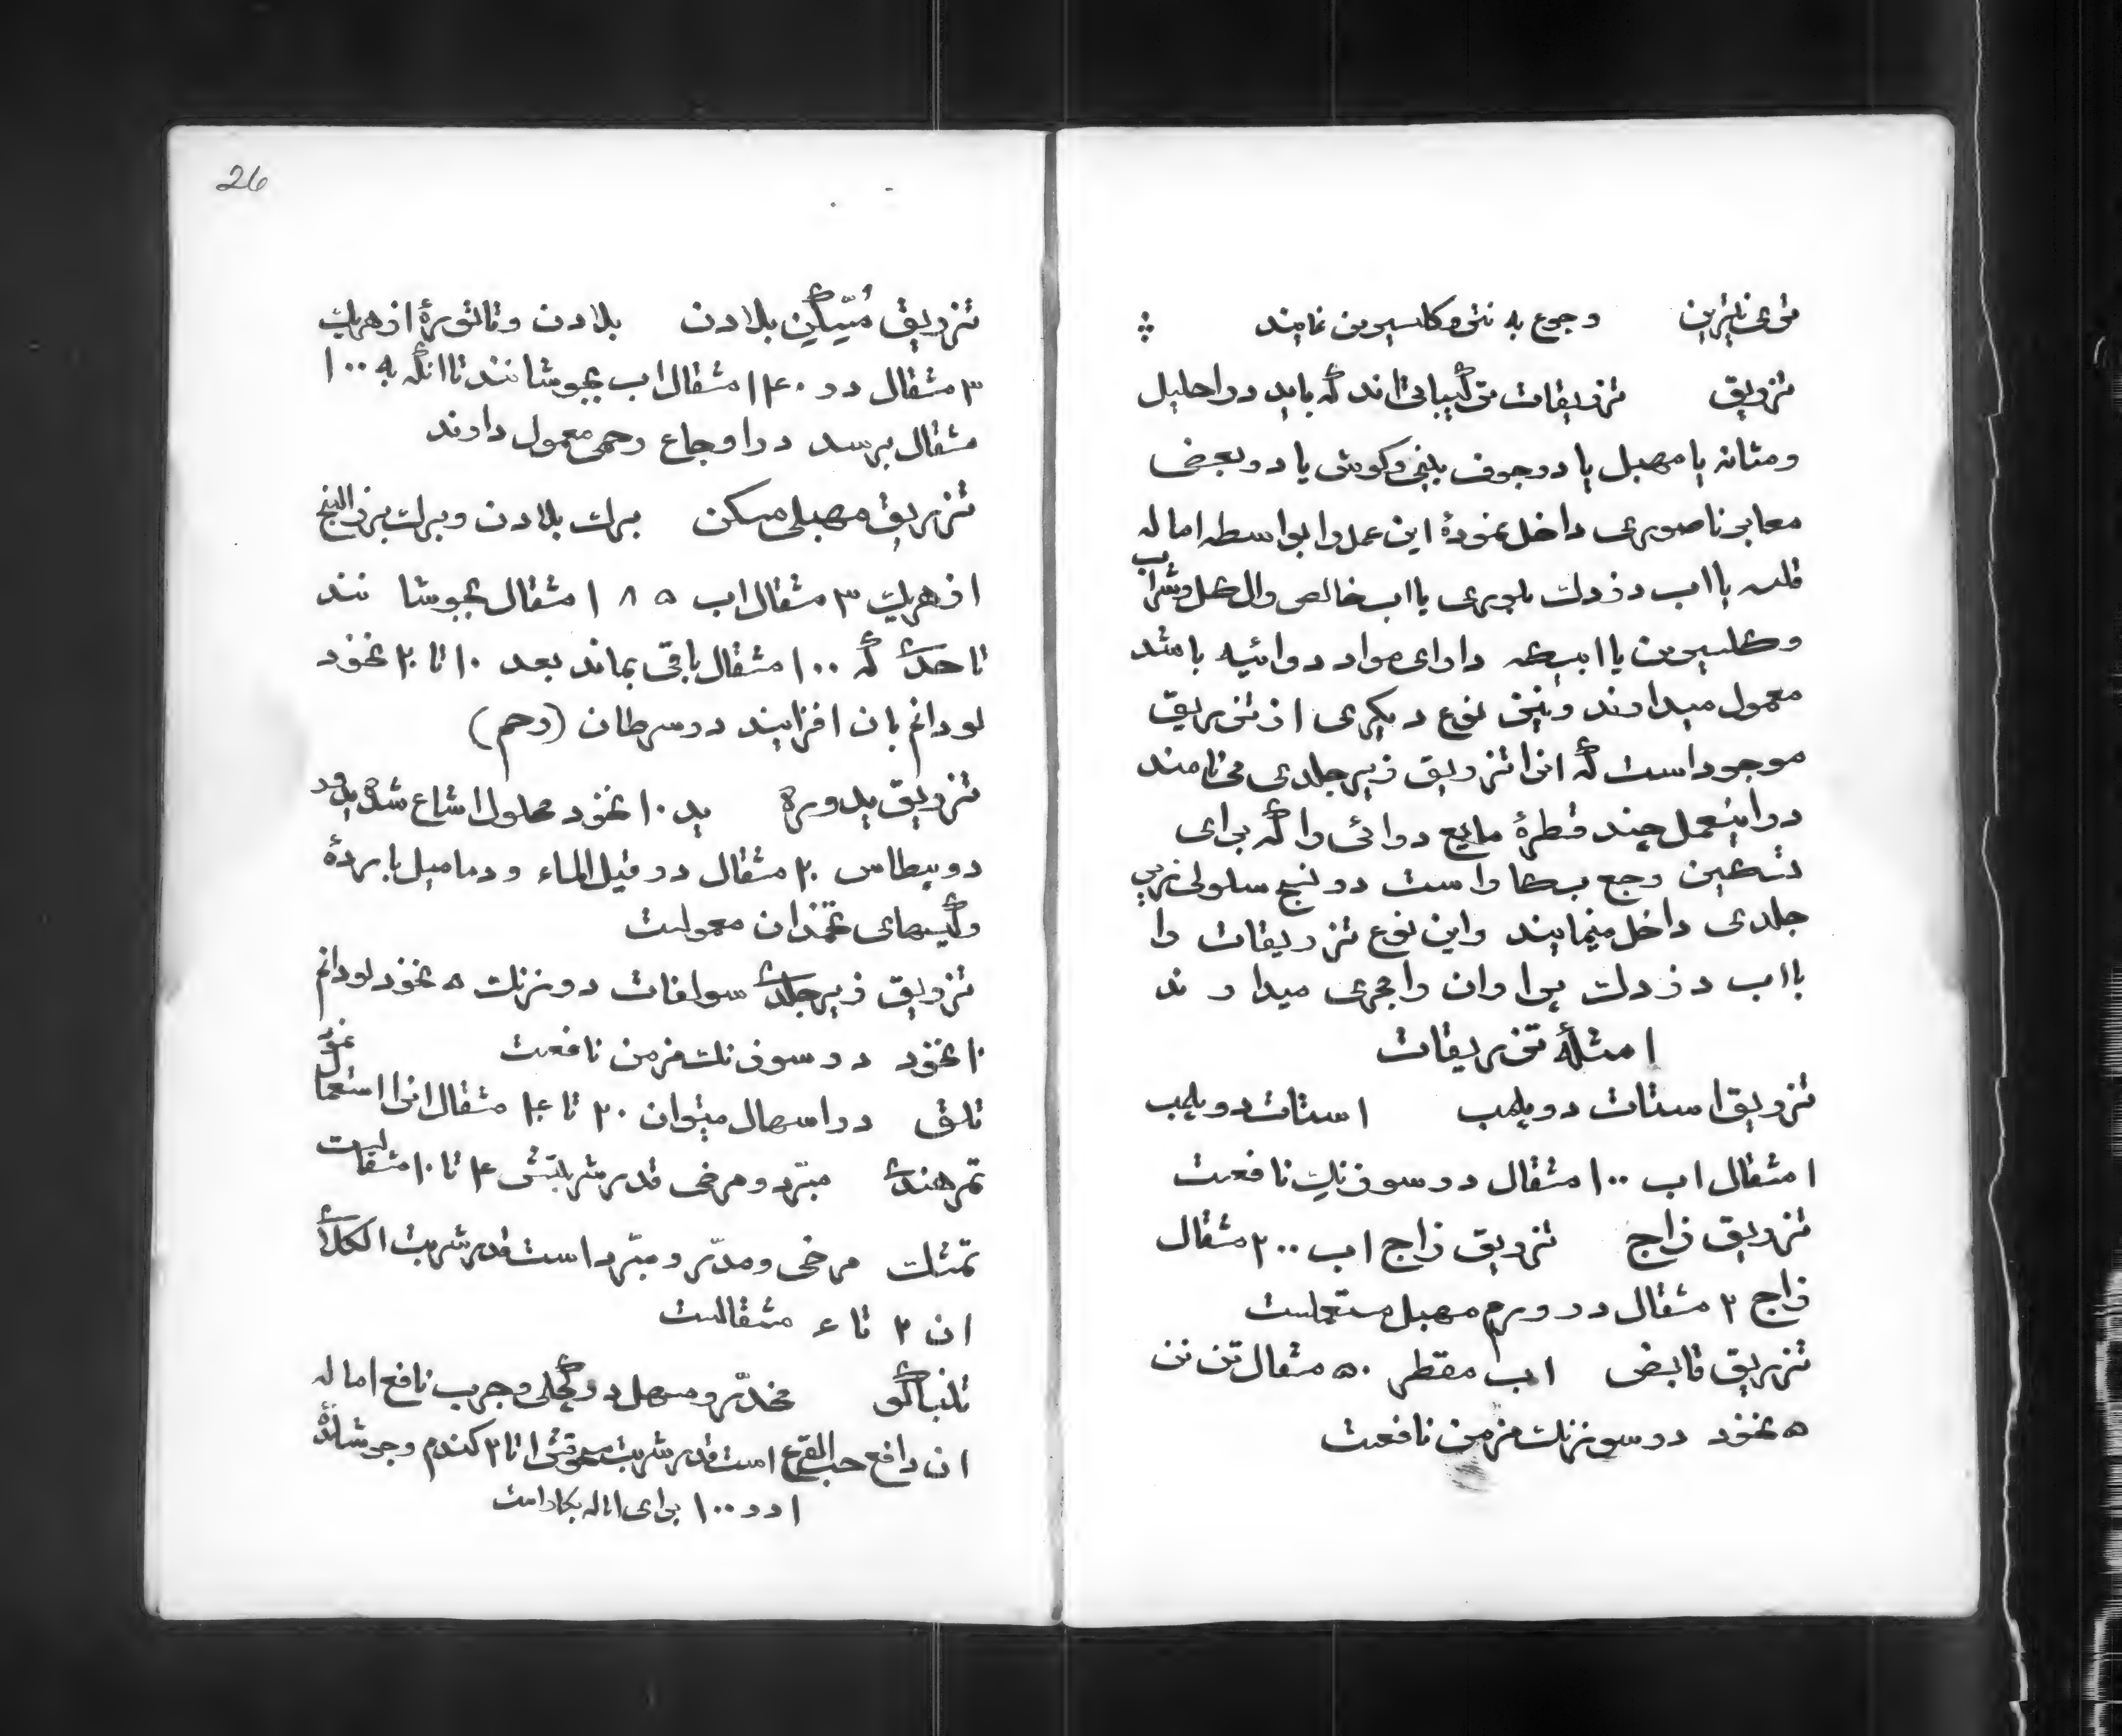 رجوع به نترو کلسیرین نمایند
تزریق تزریقات ترکیباتی‌اند که باید در احلیل
و مثانه یا مهبل یا در جوف بینی و کوش یا در بعض
معابر ناصوری داخل نموده این عمل را بواسطه اماله
یا اب در زدلت بلوری یا اب خالص و الکل و شراب
و کلسیرین یا ابیکه دارای مواد دوائیه باشد
معمول میدارند و نیز نوع دیکری از تزریق
موجود است که انرا تزریق زیر جلدی می‌نامند
در اینعمل چند قطرهٔ مایع دوائی را که برای
تسکین وجع بکار است در نسج سلولی زیر
جلدی داخل مینمایند و این نوع تزریقات را
با اب در زدلت پراوان مجری میدارند
امثلهٔ تزریقات
تزریق استات دو پلمب استات دو پلمب
۱ مثقال اب ۱۰۰ مثقال در سوزنک نافعست
تزریق زاج تزریق زاج اب ۲۰۰ مثقال
زاج ۲ مثقال در ورم مهبل مستعملست
تزریق قابض اب مقطر ۵۰ مثقال تن نن
۵ نخود در سوزنک مزمن نافعست
26
تزریق مسکن بلادن بلادن و تاتوره از هریک
۳ مثقال در ۱۴۰ مثقال اب بجوشانند تا انکه به ۱۰۰
مثقال برسد در اوجاع رحمی معمول دارند
تزریق مهبلی مسکن برک بلادن و برک بزرالبنج
از هریک ۳ مثقال اب ۱۸۵ مثقال بجوشانند
تا حدی که ۱۰۰ مثقال باقی بماند بعد ۱۰ تا ۲۰ نخود
لودانم بان افزایند در سرطان (رحم)
تزریق یدوره ید ۱۰ نخود محلول اشباع شده یدور
دو پطاس ۲۰ مثقال در قیل الماء و دمامیل بارده
و کیسهای تخمدان معمولست
تزریق زیر جلدی سولفات دو زنک ۵ نخود لودانم
۱۰ نخود در سوزنک مزمن نافعست
تلق در اسهال میتوان ۲۰ تا ۴۰ مثقال انرا استعمال نمود
تمر هندی مبرد و مرخی قدر شربتش ۴ تا ۱۰ مثقالست
تمشک مرخی و مدر و مبرد است قدر شربت الکلای
ان ۲ تا ۴ مثقالست
تنباکو مخدر و مسهل در کچلی و جرب نافع اماله
ان دافع حب القرع است قدر شربت سحوقش ۱ تا ۲ کندم و جوشاندهٔ
۱ در ۱۰۰ برای اماله بکار است